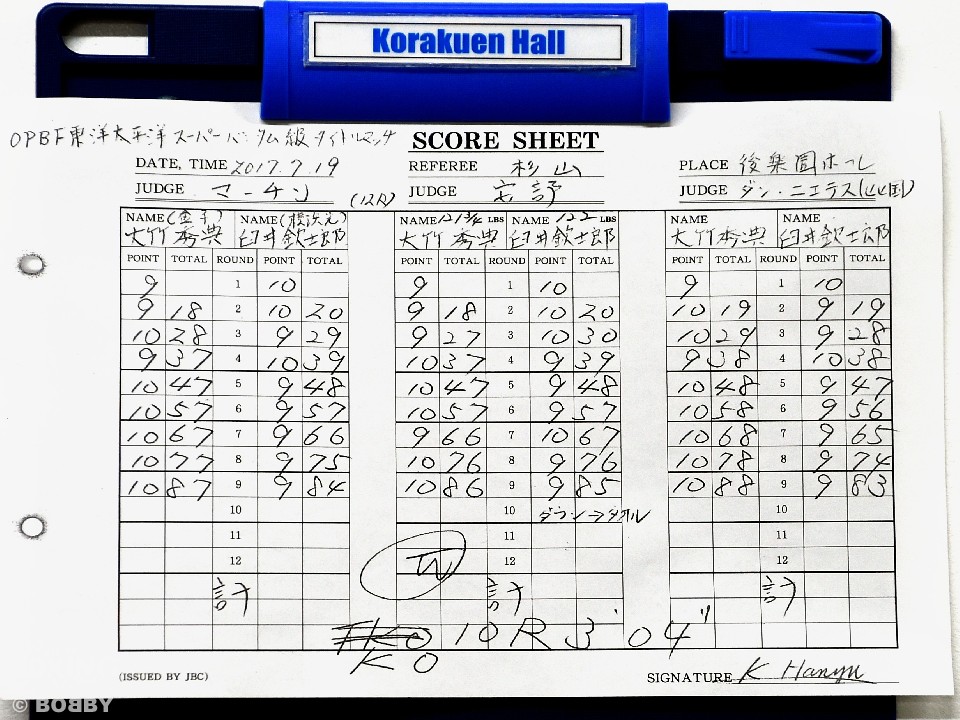 Korakuen Hall
OPBF東洋太平洋スーパーバンタム級タイトルマッチ SCORE SHEET
DATE, TIME 2017.7.19 REFEREE 杉山 PLACE 後楽園ホール
JUDGE マーチン (12R) JUDGE 安部 JUDGE ダン・ニエテス(比国)
NAME (金子) NAME (横浜光) NAME 121 3/4 LBS NAME 122 LBS NAME NAME
大竹秀典 臼井欽士郎 大竹秀典 臼井欽士郎 大竹秀典 臼井欽士郎
POINT TOTAL ROUND POINT TOTAL POINT TOTAL ROUND POINT TOTAL POINT TOTAL ROUND POINT TOTAL
9 1 10 9 1 10 9 1 10
9 18 2 10 20 9 18 2 10 20 10 19 2 9 19
10 28 3 9 29 9 27 3 10 30 10 29 3 9 28
9 37 4 10 39 10 37 4 9 39 9 38 4 10 38
10 47 5 9 48 10 47 5 9 48 10 48 5 9 47
10 57 6 9 57 10 57 6 9 57 10 58 6 9 56
10 67 7 9 66 9 66 7 10 67 10 68 7 9 65
10 77 8 9 75 10 76 8 9 76 10 78 8 9 74
10 87 9 9 84 10 86 9 9 85 10 88 9 9 83
10 10 ダウン→タオル 10
11 11 11
12 12 12
計 計 計
TKO 10R 3'04"
KO
(ISSUED BY JBC) SIGNATURE K Hanyu
© BOBBY